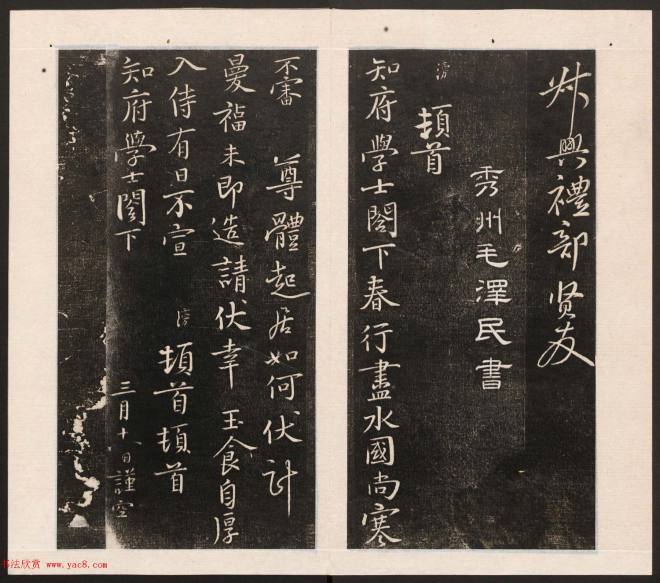 叔興禮部贤友
秀州毛澤民書
滂頓首
知府學士閤下春行盡水國尚寒
不審 尊體起居如何伏計
曼福未即造請伏幸 玉食自厚
入侍有日不宣 滂頓首頓首
知府學士閤下 三月十日謹空
书法欣赏 www.yac8.com